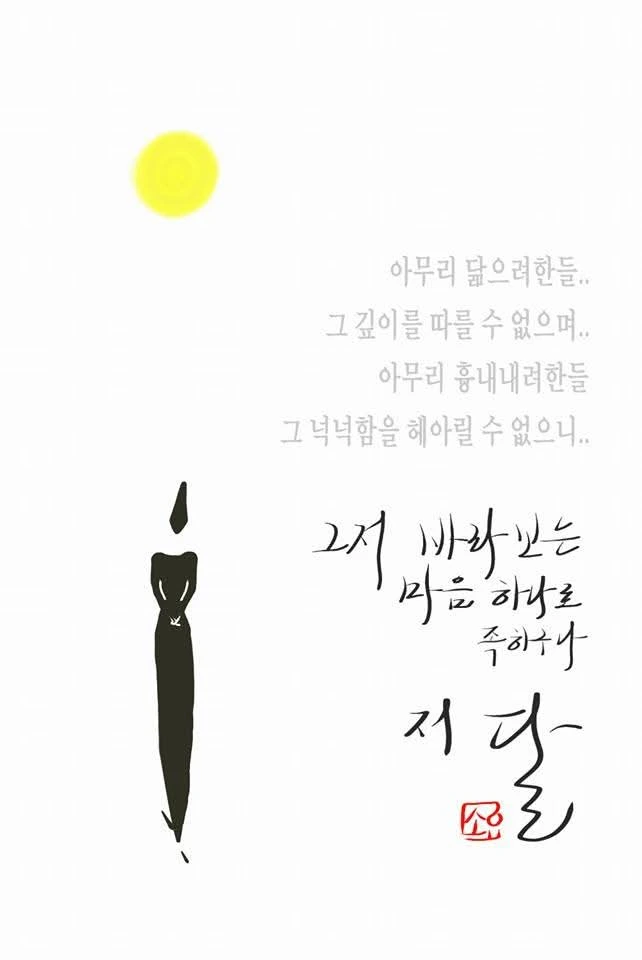 아무리 닮으려한들..
그 깊이를 따를 수 없으며..
아무리 흉내내려한들
그 넉넉함을 헤아릴 수 없으니..
그저 바라보는
마음 하나로
족하구나
저 달